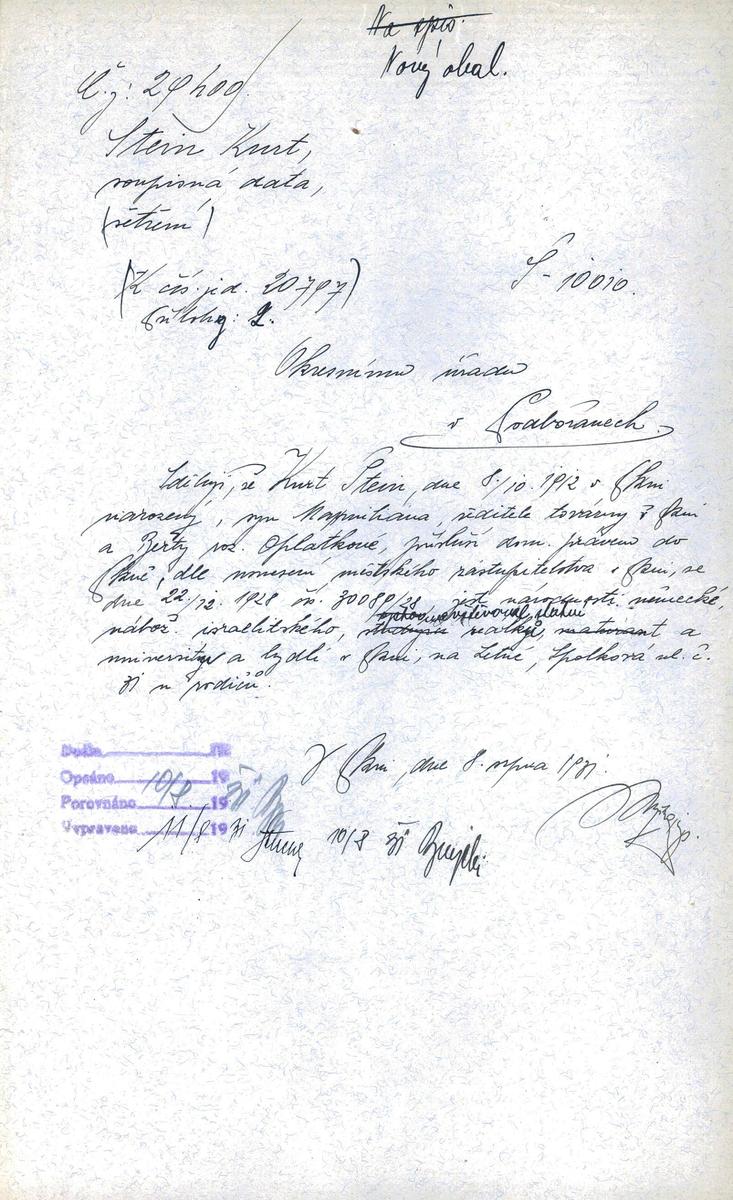 Na spis.
Nový obal.
Č. j. 29400
Stein Kurt,
soupisná data,
(šetření)
(K čís. jed. 20797)
Přílohy: 2.
S - 10010.
Okresnímu úřadu
v Podbořanech.
Sděluji, že Kurt Stein, dne 8./10. 1912 v
narozený, syn Maxmiliána, ředitele továrny v
a Berty roz. Oplatkové, přísluší dom. právem do
dle usnesení městského zastupitelstva v ze
dne 22/12. 1928 čís. 30080/28 jest národnosti německé,
nábož. israelitského, navštěvoval státní
reálku, maturant a
university a bydlí v na Letné, Spolková ul. č.
31 u rodičů.
V dne 8. srpna 1931.
Došlo 19
Opsáno 10/8 19 31
Porovnáno 19
Vypraveno 11/8 19 31
10/8 31